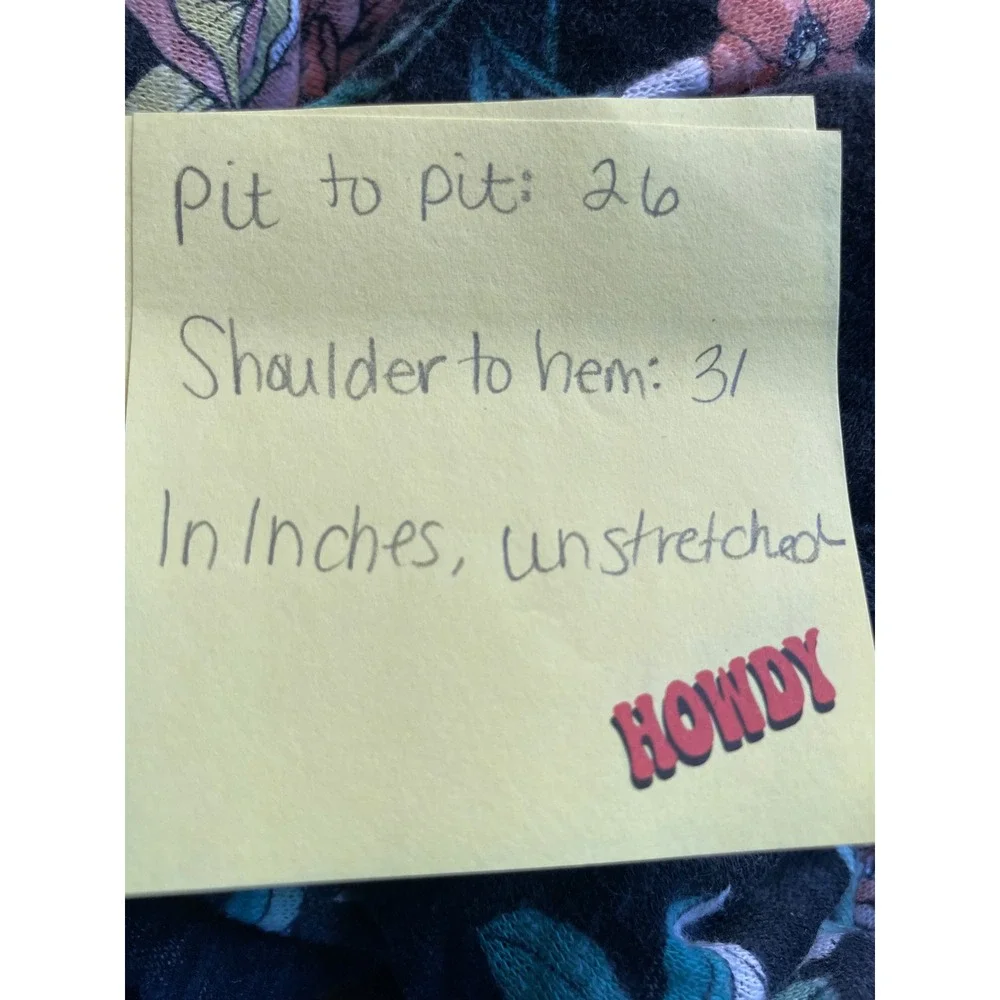 Pit to pit: 26
Shoulder to hem: 31
In Inches, unstretched
HOWDY